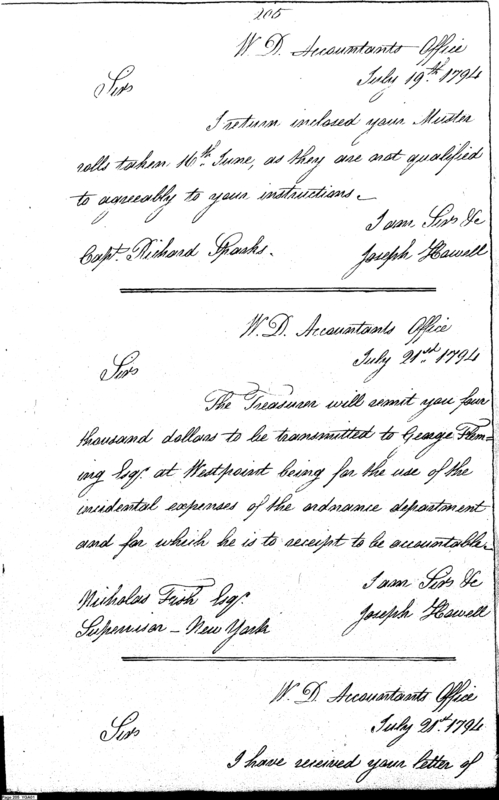 205
W. D. Accountants Office
July 19th 1794
Sir
I return inclosed your Muster
rolls taken 16th June, as they are not qualified
to agreeably to your instructions.
I am Sir &c
Capt. Richard Sparks.
Joseph Howell
W. D. Accountants Office
July 21st 1794
Sir
The Treasurer will remit you four
thousand dollars to be transmitted to George Flem=
ing Esqr. at Westpoint being for the use of the
incidental expenses of the ordnance department
and for which he is to receipt to be accountable.
I am Sir &c
Nicholas Fish Esqr.
Joseph Howell
Supervisor – New York
W. D. Accountants Office
July 21st 1794
Sir
I have received your letter of